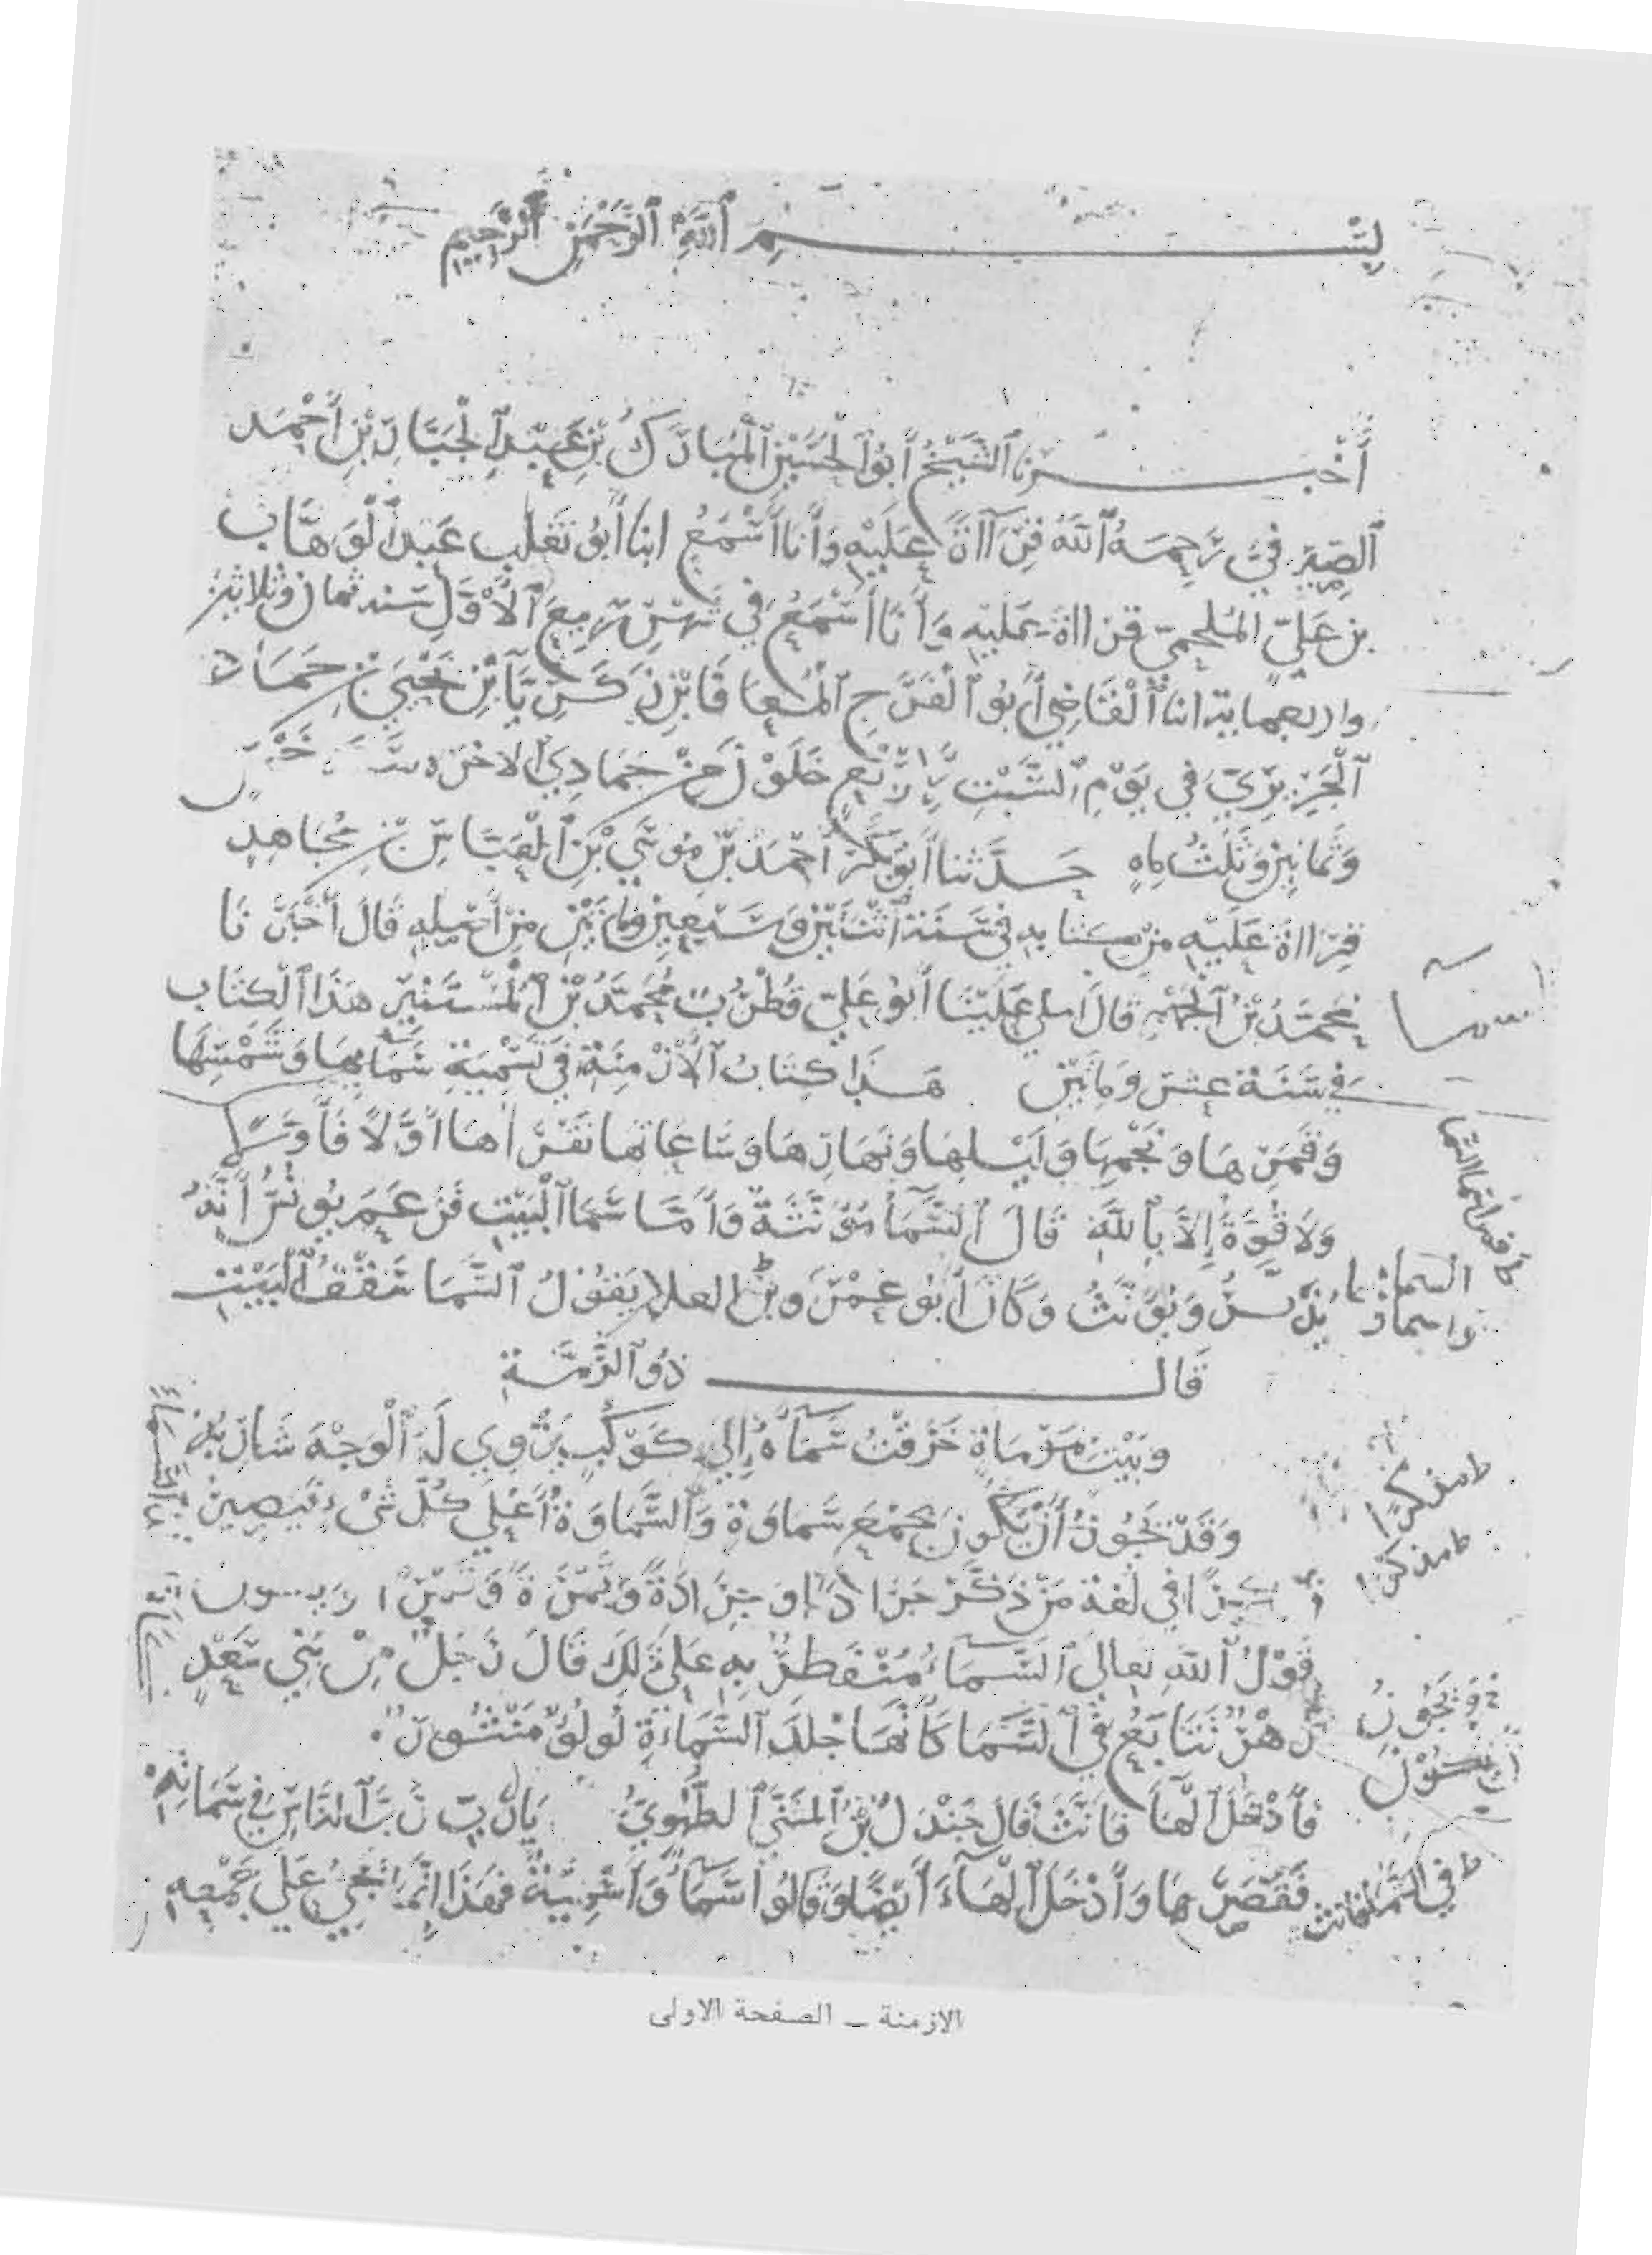 بِسْمِ ٱللَّهِ ٱلرَّحْمَنِ ٱلرَّحِيمِ
أَخْبَرَنَا ٱلشَّيْخُ أَبُو ٱلْحُسَيْنِ ٱلْمُبَارَكُ بْنُ عَبْدِ ٱلْجَبَّارِ بْنِ أَحْمَد
ٱلصَّيْرَفِيُّ رَحِمَهُ ٱللَّهُ قِرَاآةً عَلَيْهِ وَأَنَا أَسْمَعُ انبا أَبُو تَغْلِب عَبْدُ ٱلْوَهَّاب
بن عَلِيّ المُلْحَمِيّ قرااة عَلَيْهِ وَأَنَا أَسْمَعُ فِي شَهْرِ رَبِيعِ ٱلْأَوَّلِ سنة ثمان وثلاثين
واربعماية انبا ٱلْقَاضِي أَبُو ٱلْفَرَجِ ٱلْمُعَافَا بْنُ زَكَرِيَّا بْنِ يَحْيَى بْنِ حَمَّاد
ٱلْجَرِيرِيّ فِي يَوْمِ ٱلسَّبْتِ لِأَرْبَعٍ خَلَوْنَ مِنْ جُمَادِي ٱلاخرة سنة خَمْسٍ
وَثَمَانِينَ وَثَلَثُ مِايةٍ حَدَّثَنا أَبُو بَكْرٍ أَحْمَدُ بْنُ مُوسَى بْنِ ٱلْعَبَّاسِ بْنِ مُجَاهِدٍ
قِرَااةً عَلَيْهِ مِنْ كِتَابِهِ فِي سَنَة ٱثْنَتَيْنِ وَسَبْعِينَ وَمِايَتَيْنِ مِنْ أَصْلِهِ قَالَ أَخْبَرَنَا
مُحَمَّدُ بْنُ ٱلْجَهْمِ قَالَ املى عَلَيْنَا أَبُو عَلِيّ قُطْرُبٌ مُحَمَّدُ بْنُ ٱلْمُسْتَنِيرِ هَذَا ٱلْكِتَاب
فِي سَنَة عَشْرٍ وَمِايَتَيْنِ هَذَا كِتَابُ ٱلْأَزْمِنَةِ فِي تَسْمِيَةِ سَمَايِهَا وَشَمْسِهَا
وَقَمَرِهَا وَنُجُمِهَا وَلَيْلِهَا وَنَهَارِهَا وَسَاعَاتِهَا نَقْرَاهَا أَوَّلًا فَأَوَّلًا
وَلَا قُوَّةَ إِلَّا بِٱللَّهِ قَالَ ٱلسَّمَاءُ مُؤَنَّثَةٌ وَأَمَّا سَمَا ٱلْبَيْتِ فَزَعَمَ يُونُسُ أَنَّهُ
يُذَكَّرُ وَيُؤَنَّثُ وَكَانَ أَبُو عَمْرِو بْنُ العلا يَقُولُ ٱلسَّمَا سَقْفُ ٱلْبَيْت
قَالَ ذُو ٱلرُّمَّةِ
وبَيْت بمَوْمَاةٍ خَرَقْتُ سَمَاءَهُ إِلَى كَوْكَبٍ يَزْوِي لَهُ ٱلْوَجْهَ شَارِبُهْ
وَقَدْ يَجُوزُ أَنْ يَكُونَ جمْعَ سَمَاوَةٍ وَٱلسَّمَاوَةُ أَعْلَى كُلِّ شَيْءٍ فَيَصِيرُ
فِي لُغَةِ مَنْ ذَكَّرَ جَرَادًا وَجَرَادَةً وَتَمْرَةً وَتَمْرًا
قَوْلُ ٱللَّهِ تعالى ٱلسَّمَاءُ مُنْفَطِرٌ بِهِ عَلَى ذَلِكَ قَالَ رَجُلٌ مِنْ بَنِي سَعْدٍ
زُهْرٌ تَتَابَعُ فِي ٱلسَّمَا كَأَنَّهَا جِلْدَ ٱلسَّمَاءَةِ لُولُؤٌ مَنْثُورُ
فَأَدْخَلَ ٱلْهَاءَ فَأَنَّثَ قَالَ جَنْدَلُ بْنُ ٱلْمُثَنَّى ٱلطُّهَوِيُّ يَارَبِّ رَبَّ ٱلنَّاسِ فِي سَمَاتِهِ
فَقَصَرَهَا وَأَدْخَلَ ٱلْهَاءَ أَيْضًا وَقَالُوا سَمَاءٌ وَأَسْمِيَةٌ فَهَذَا إِنَّمَا يَجِيءُ عَلَى جَمْعِهِ
الازمنة ــ الصفحة الاولى